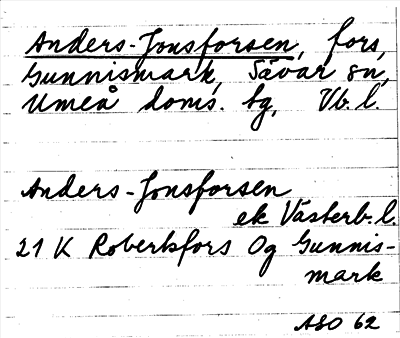 Anders-Jonsforsen, fors,
Gunnismark, Sävar sn,
Umeå doms. bg, Vb. l.
Anders-Jonsforsen
ek Västerb. l.
21 K Robertsfors Og Gunnis-
mark
ASO 62